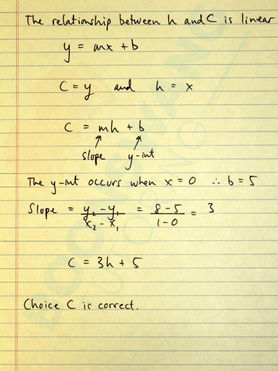 The relationship between h and C is linear
y = mx + b
C = y and h = x
C = mh + b
slope y-int
The y-int occurs when x = 0 ∴ b = 5
Slope = y₂ - y₁ / x₂ - x₁ = 8 - 5 / 1 - 0 = 3
C = 3h + 5
Choice C is correct.